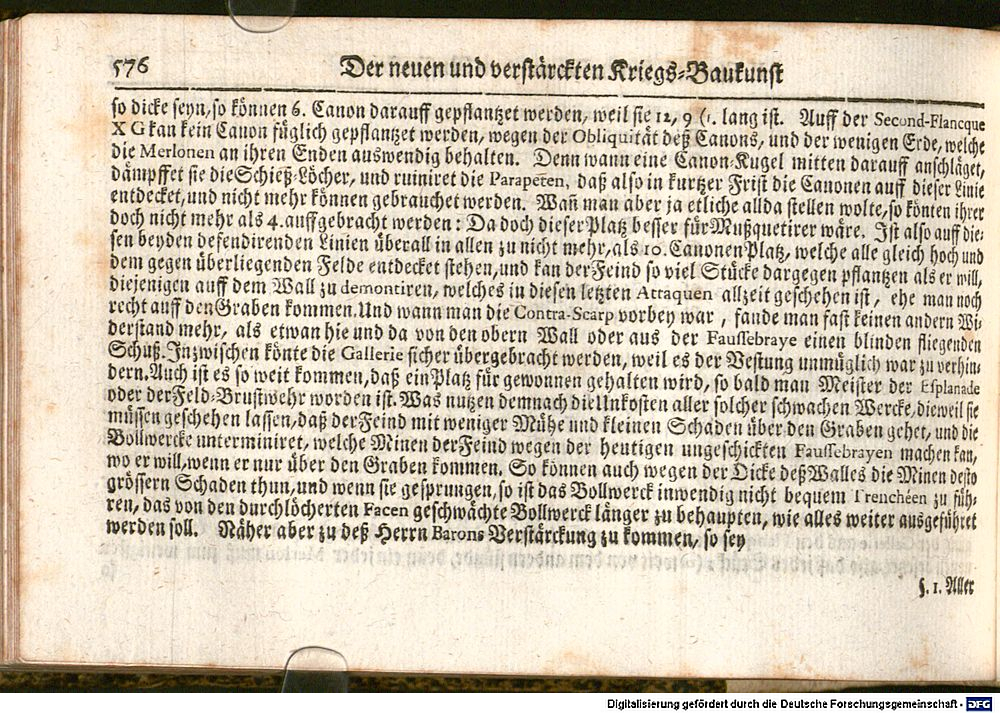 576 Der neuen und verstärckten Kriegs-Baukunst
so dicke seyn, so können 6. Canon darauff gepflantzet werden, weil sie 12, 9 (1. lang ist. Auff der Second-Flancque
X G kan kein Canon füglich gepflantzet werden, wegen der Obliquität deß Canons, und der wenigen Erde, welche
die Merlonen an ihren Enden auswendig behalten. Denn wann eine Canon-Kugel mitten darauff anschläget,
dämpffet sie die Schieß-Löcher, und ruiniret die Parapeten, daß also in kurtzer Frist die Canonen auff dieser Linie
entdecket, und nicht mehr können gebrauchet werden. Wañ man aber ja etliche allda stellen wolte, so könten ihrer
doch nicht mehr als 4. auffgebracht werden: Da doch dieser Platz besser für Mußquetirer wäre. Ist also auff die-
sen beyden defendirenden Linien überall in allen zu nicht mehr, als 10. Canonen Platz, welche alle gleich hoch und
dem gegen überliegenden Felde entdecket stehen, und kan der Feind so viel Stücke dargegen pflantzen als er will,
diejenigen auff dem Wall zu demontiren, welches in diesen letzten Attaquen allzeit geschehen ist, ehe man noch
recht auff den Graben kommen. Und wann man die Contra-Scarp vorbey war, fande man fast keinen andern Wi-
derstand mehr, als etwan hie und da von den obern Wall oder aus der Faussebraye einen blinden fliegenden
Schuß. Inzwischen könte die Gallerie sicher übergebracht werden, weil es der Vestung unmüglich war zu verhin-
dern. Auch ist es so weit kommen, daß ein Platz für gewonnen gehalten wird, so bald man Meister der Esplanade
oder der Feld-Brustwehr worden ist. Was nutzen demnach die Unkosten aller solcher schwachen Wercke, dieweil sie
müssen geschehen lassen, daß der Feind mit weniger Mühe und kleinen Schaden über den Graben gehet, und die
Bollwercke unterminiret, welche Minen der Feind wegen der heutigen ungeschickten Faussebrayen machen kan,
wo er will, wenn er nur über den Graben kommen. So können auch wegen der Dicke deß Walles die Minen desto
grössern Schaden thun, und wenn sie gesprungen, so ist das Bollwerck inwendig nicht bequem Trenchéen zu füh-
ren, das von den durchlöcherten Facen geschwächte Bollwerck länger zu behaupten, wie alles weiter ausgeführet
werden soll. Näher aber zu deß Herrn Barons Verstärckung zu kommen, so sey
§. 1. Aller
Digitalisierung gefördert durch die Deutsche Forschungsgemeinschaft - DFG